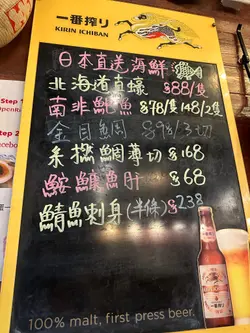 一番搾り
KIRIN ICHIBAN
日本直送海鮮
北海道直蠔 $88/隻
南非鮑魚 $78/1隻 148/2隻
金目鯛 $98/3切
魚 $168
鮟鱇魚肝 $68
鯖魚刺身(半條) $238
一番搾り
100% malt, first press beer.
Step 1
Step 2